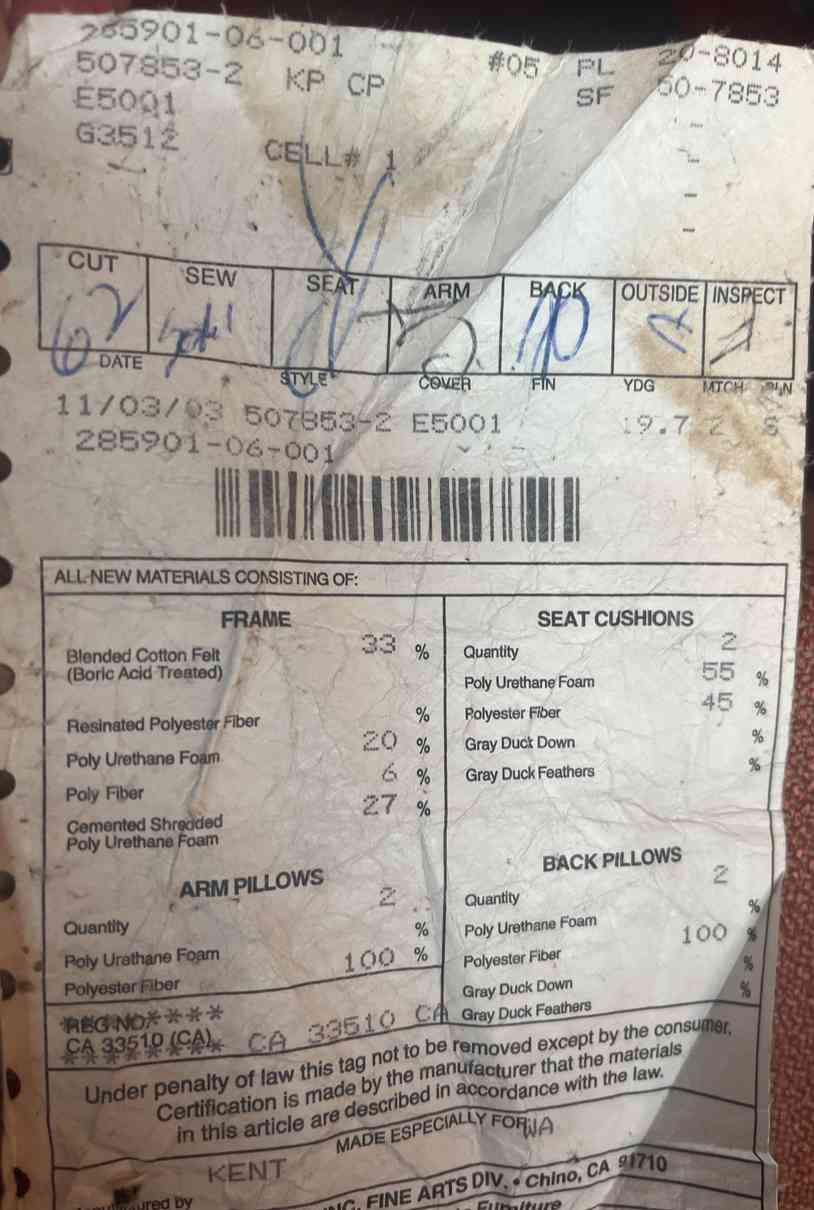 265901-06-001 #05 PL 20-8014
507853-2 KP CP SF 50-7853
E5001
G3512 CELL# 1
CUT SEW SEAT ARM BACK OUTSIDE INSPECT
62
DATE STYLE COVER FIN YDG MTCH
11/03/03 507853-2 E5001 19.7 2 S
285901-06-001
ALL NEW MATERIALS CONSISTING OF:
FRAME
Blended Cotton Felt 33 %
(Boric Acid Treated)
Resinated Polyester Fiber %
Poly Urethane Foam 20 %
Poly Fiber 6 %
Cemented Shredded 27 %
Poly Urethane Foam
SEAT CUSHIONS
Quantity 2
Poly Urethane Foam 55 %
Polyester Fiber 45 %
Gray Duck Down %
Gray Duck Feathers %
ARM PILLOWS
Quantity 2
Poly Urethane Foam %
Polyester Fiber 100 %
BACK PILLOWS
Quantity 2
Poly Urethane Foam %
Polyester Fiber 100 %
Gray Duck Down %
Gray Duck Feathers %
REG NO.****
CA 33510 (CA) CA 33510 CA
Under penalty of law this tag not to be removed except by the consumer.
Certification is made by the manufacturer that the materials
in this article are described in accordance with the law.
MADE ESPECIALLY FOR
KENT WA
INC. FINE ARTS DIV. • Chino, CA 91710
by Furniture